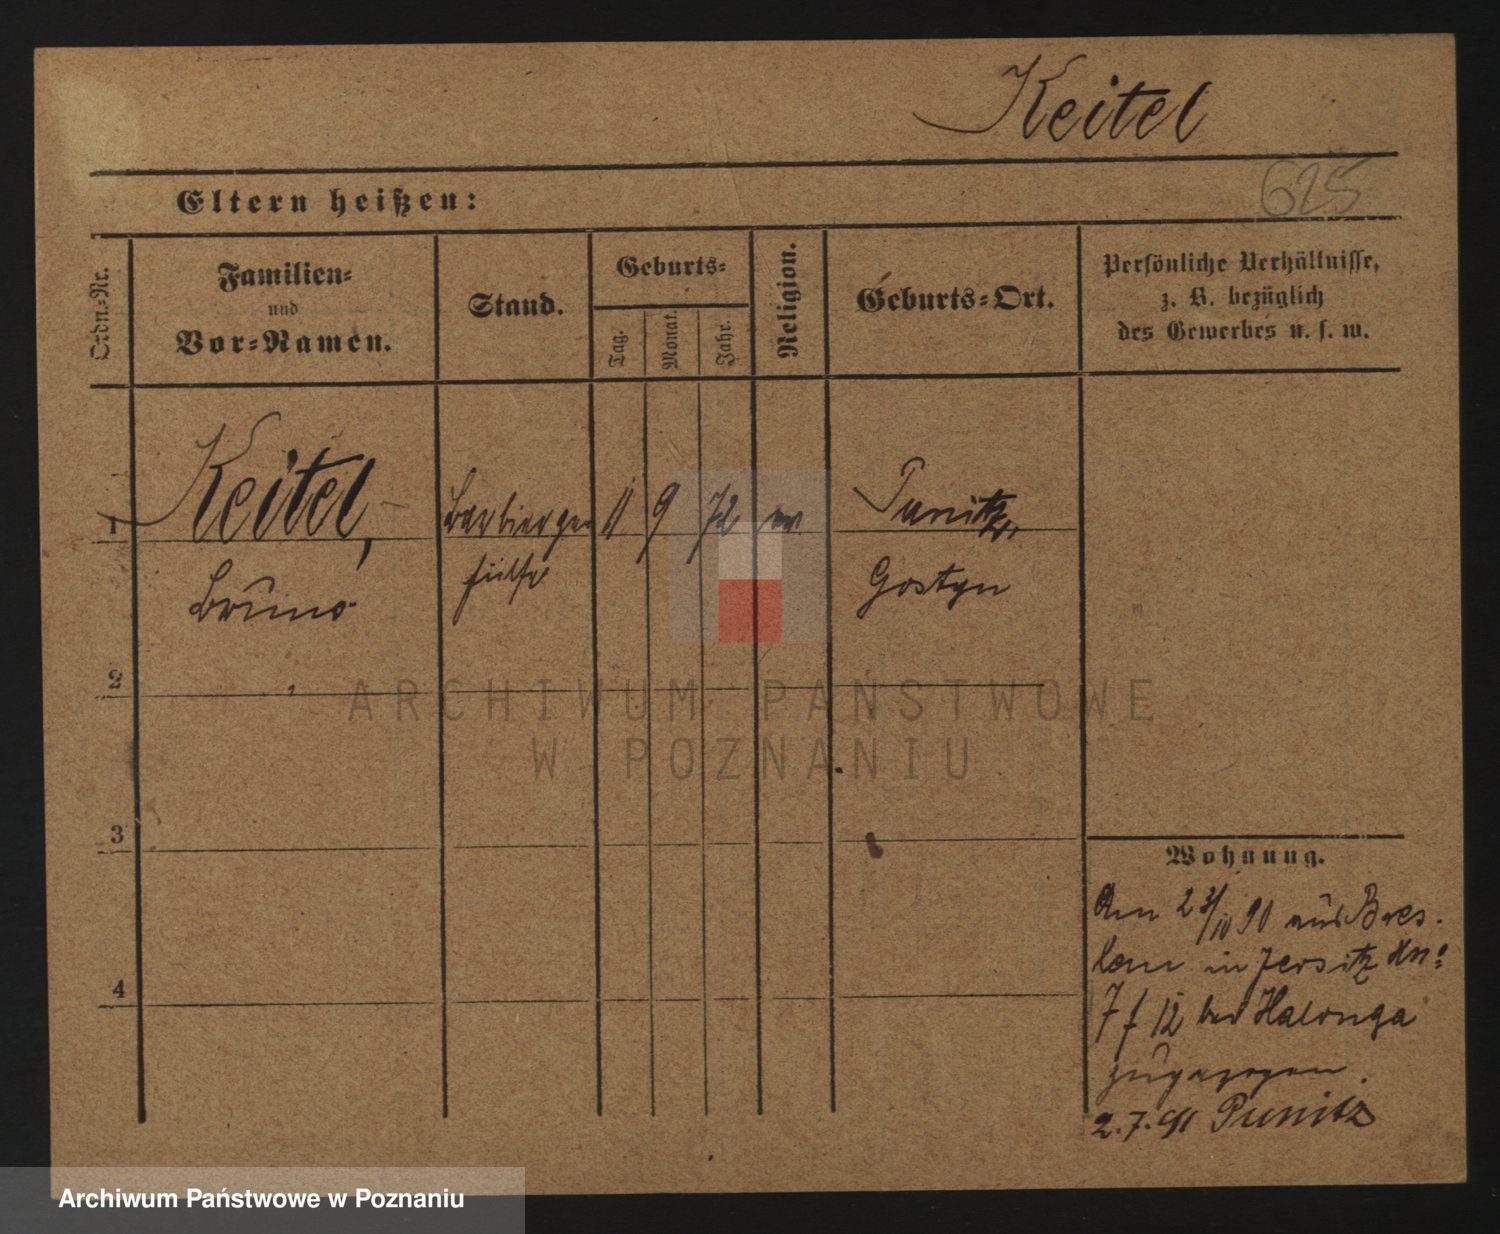 Keitel
625
Eltern heißen:
Ordn.-Nr.
Familien-
und
Vor-Namen.
Stand.
Geburts-
Tag.
Monat.
Jahr.
Religion.
Geburts-Ort.
Persönliche Verhältnisse,
z. B. bezüglich
des Gewerbes u. s. w.
1
Keitel,
Barbierge
11
9
72
Punitz,
Bruno
hülfe
Gostyn
2
3
4
ARCHIWUM PAŃSTWOWE
W POZNANIU
Wohnung.
Am 23/10 90 aus Bres-
lau in Jersitz
7 f 12 bei Halonga
zugezogen.
2.7.91 Punitz
Archiwum Państwowe w Poznaniu